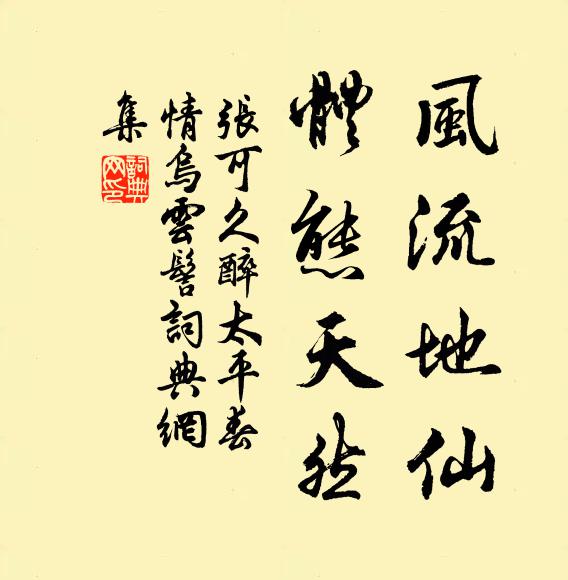 風流地仙
體態天然
張可久醉太平春
情烏雲髻詞典網
集
詞典
网印